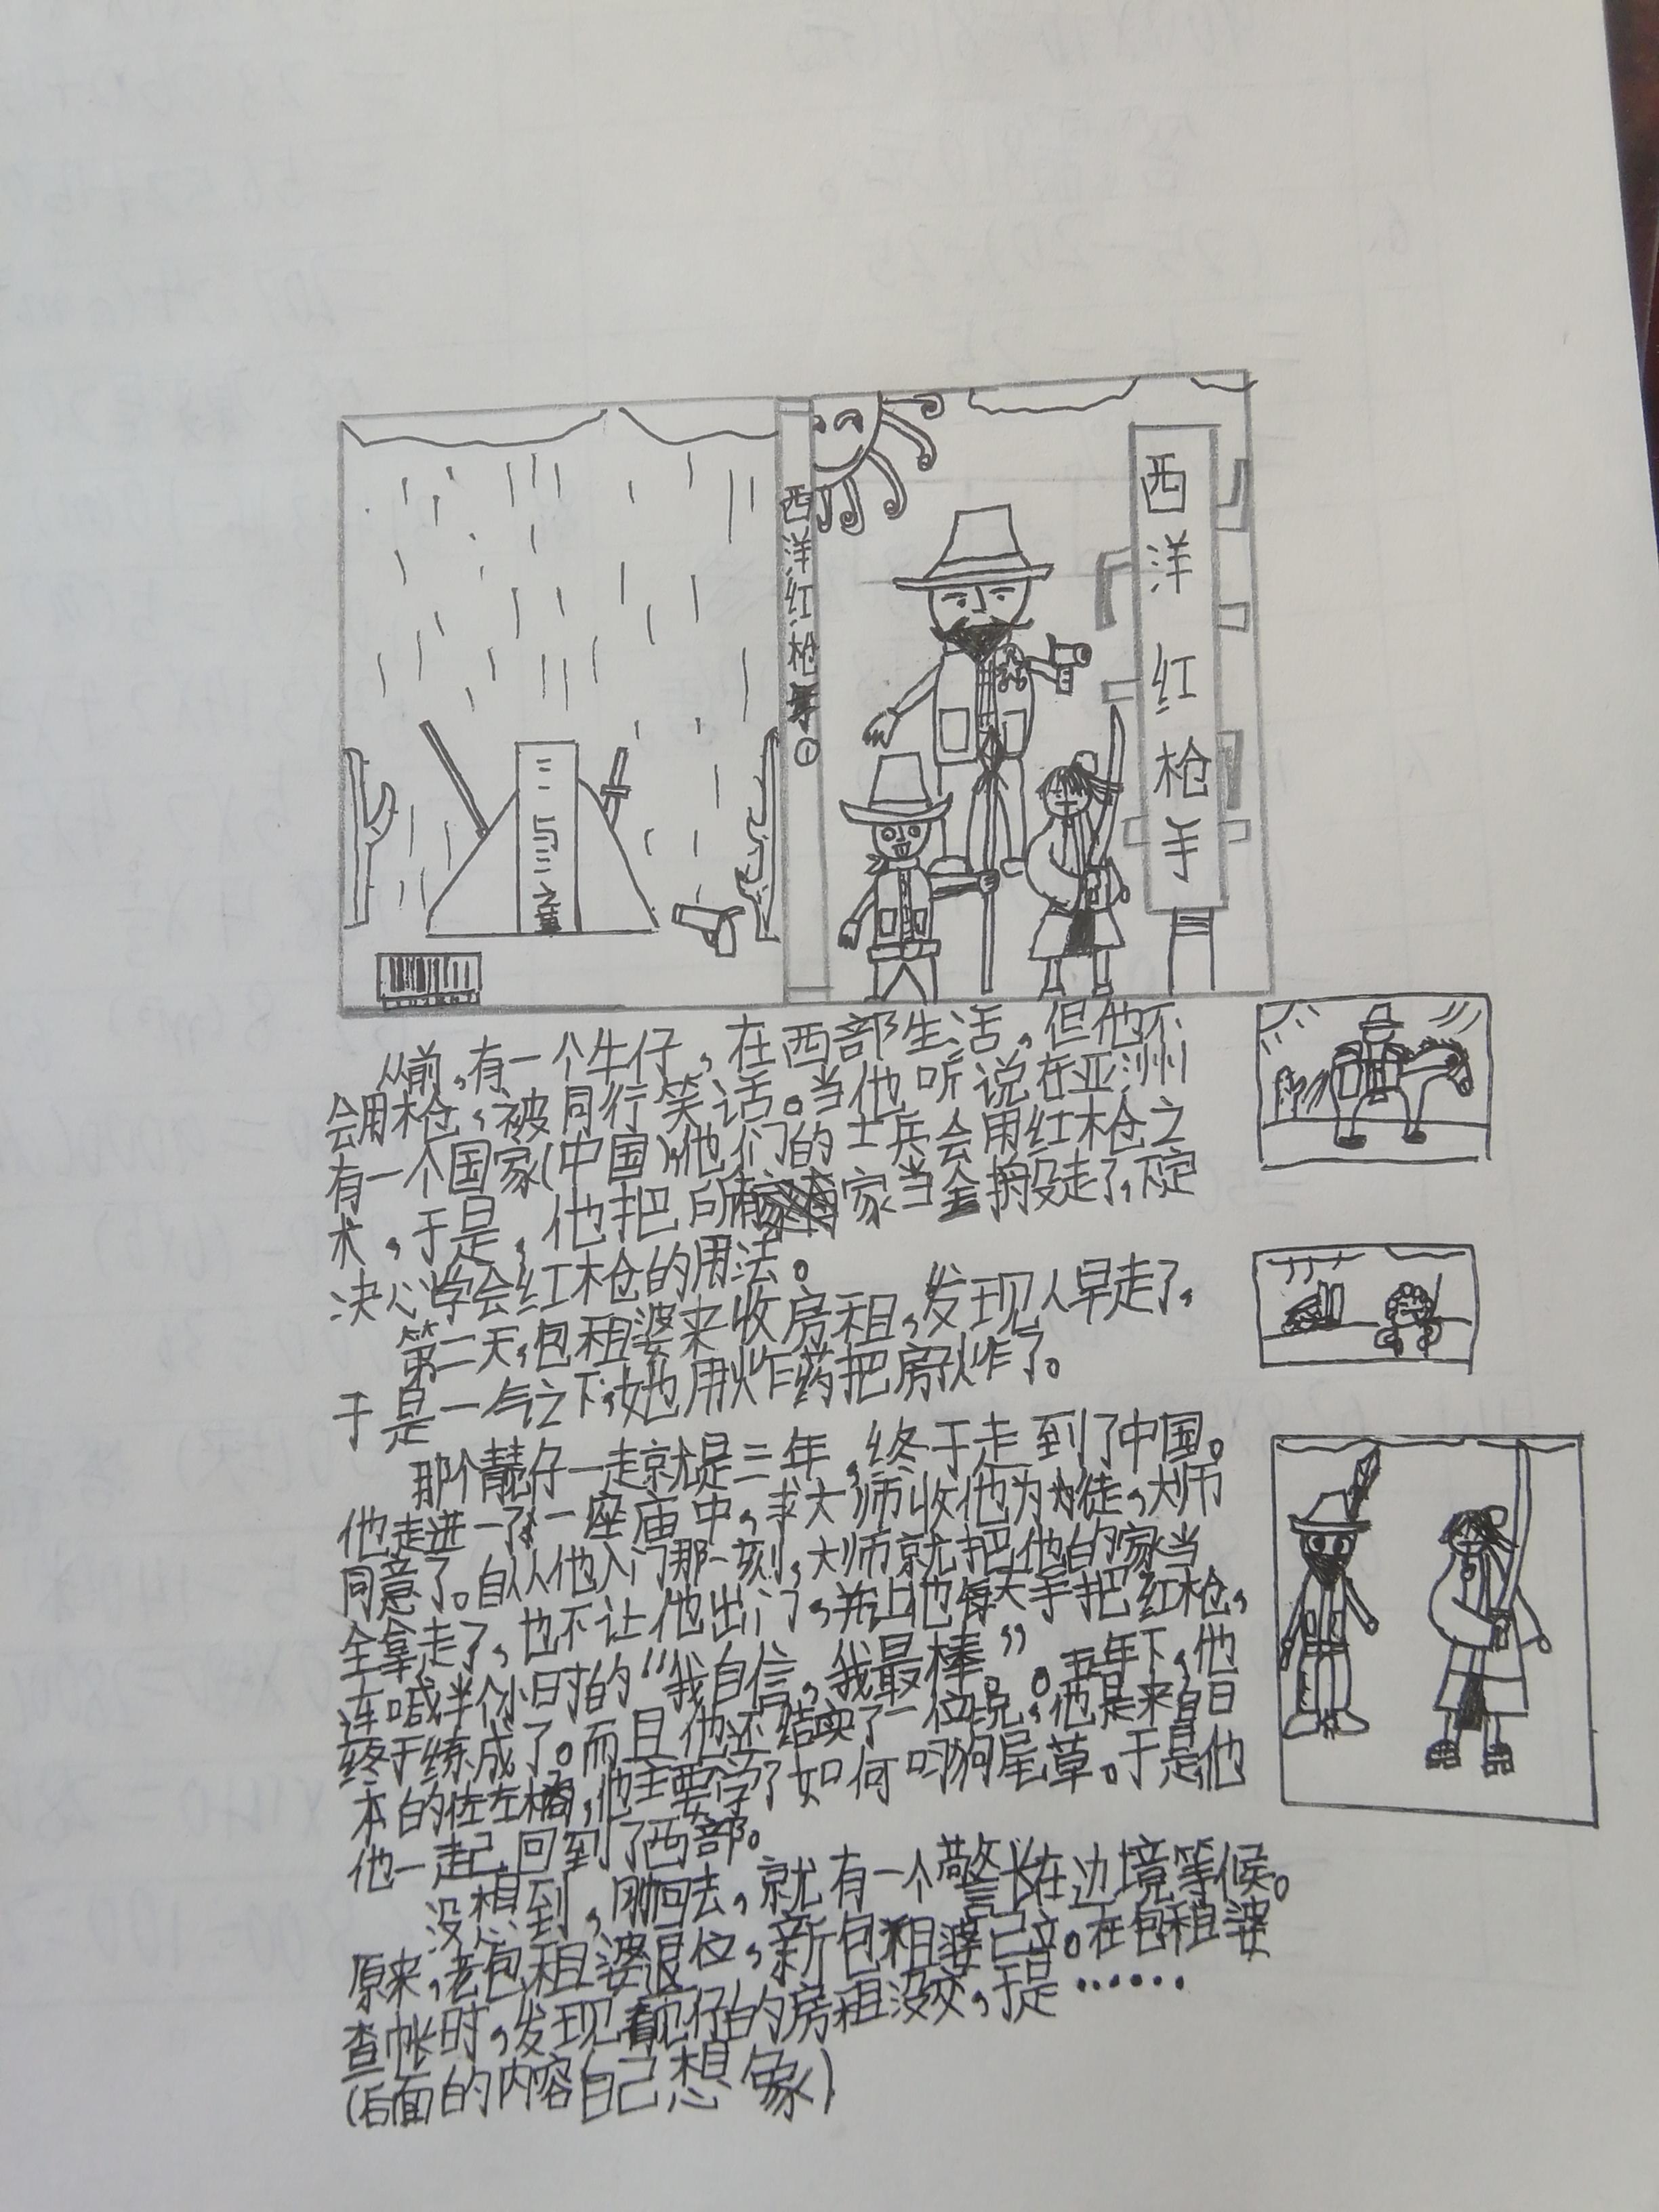 西洋红枪手①
西洋红枪手
三与三之章
从前，有一个牛仔，在西部生活，但他不
会用枪，被同行笑话。当他听说在亚洲
有一个国家(中国)，他们的士兵会用红枪之
术，于是，他把所有家当全搬走了，下定
决心学会红枪的用法。
第二天，包租婆来收房租，发现人早走了，
于是一气之下，她用炸药把房炸了。
那个靓仔一走就是三年，终于走到了中国。
他走进了一座庙中，求大师收他为徒，大师
同意了。自从他入门那一刻，大师就把他的家当
全拿走了，也不让他出门，并让他每天手把红枪，
连喊半个小时的“我自信，我最棒。”。五年下，他
终于练成了。而且他还结实了一位说，他是来自日
本的佐左橘，他主要学了如何叼狗尾草。于是他
他一起回到了西部。
没想到，刚回去，就有一个警长在边境等候。
原来，老包租婆退位，新包租婆已立。在包租婆
查帐时，发现靓仔的房租没交，于是……
(后面的内容自己想象)